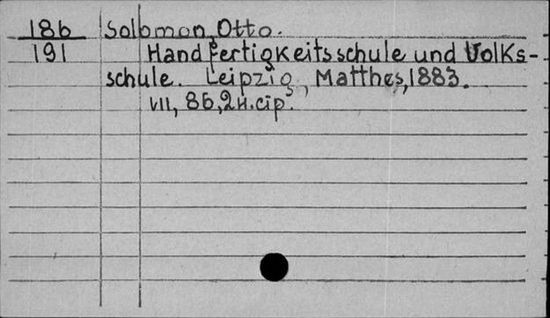 186 Solomon, Otto.
191 Handfertigkeitsschule und Volks-
schule. Leipzig, Matthes, 1883.
VII, 86, 2 H. cip.